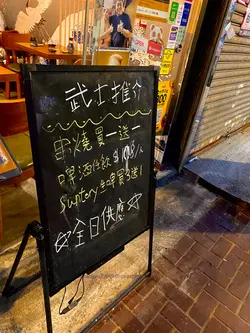 武士推介
串燒買一送一
啤酒任飲 $108/1
Suntory 生啤買3送1
☆全日供應☆